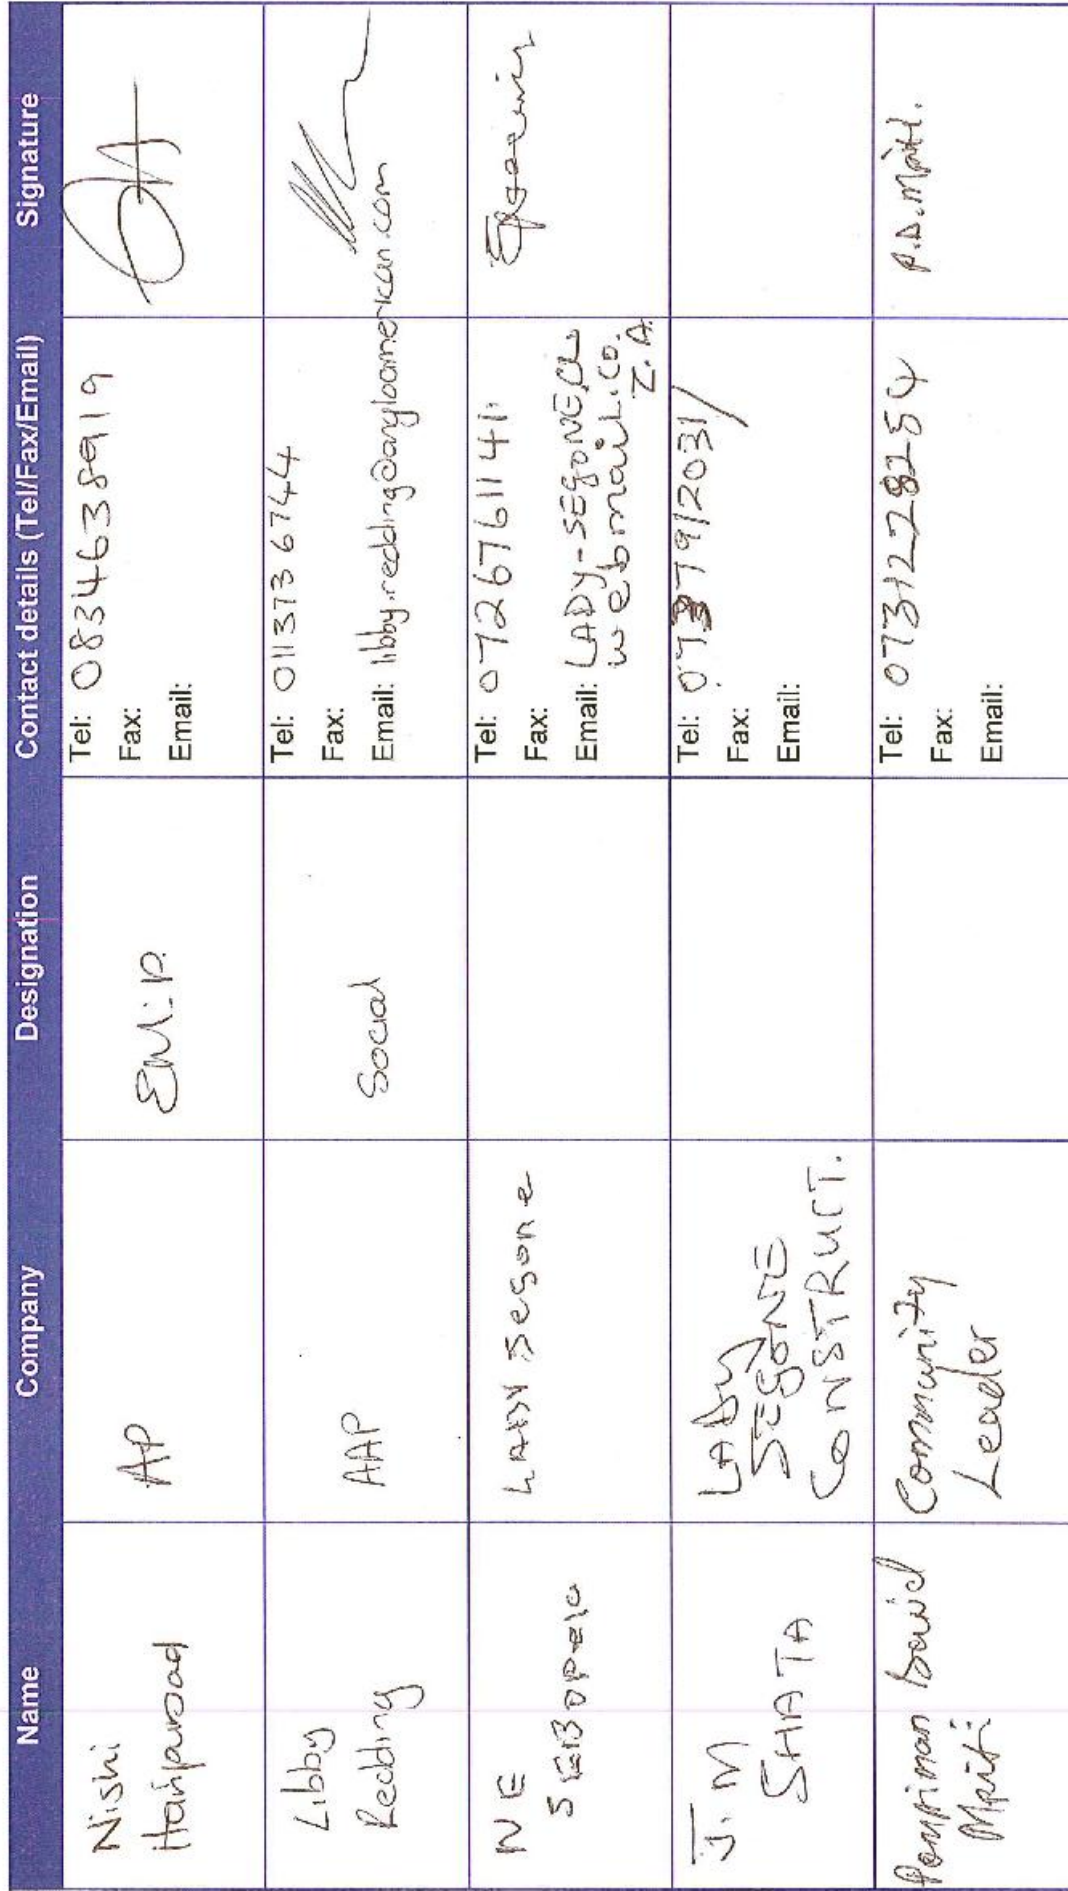 Name Company Designation Contact details (Tel/Fax/Email) Signature
Nishi
AP
Tel: 0834638919
Fax:
Email:
Libby
Redding
AAP
Social
Tel: 0113736744
Fax:
Email: libby.redding@angloamerican.com
NE
SEBOPELO
LADY Segone
Tel: 0726761141
Fax:
Email: LADY-SEGONE
webmail.co.
Z.A.
J.M
SHATA
LADY
SEGONE
CONSTRUCT.
Tel:
Fax:
Email:
David
Community
Leader
Tel: 0731228254
Fax:
Email: